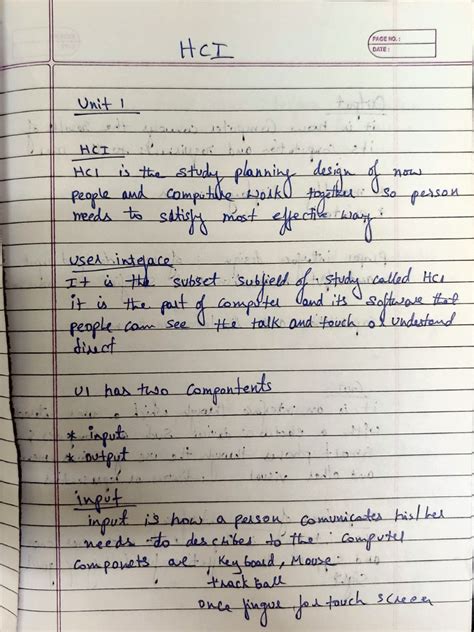 PAGE NO. :
DATE :
HCI
Unit 1
HCI
HCI is the study planning design of how
people and computure work together so person
needs to satisfy most effective way.
user inteface
It is the subset subfield of study called HCI
it is the part of computer and its software that
people cam see the talk and touch or understand
direct
UI has two Compontents
* input
* output
input
input is how a person comunicates his/her
needs to describes to the computer
Componets are Keyboard, Mouse
track ball
once fingus for touch screen